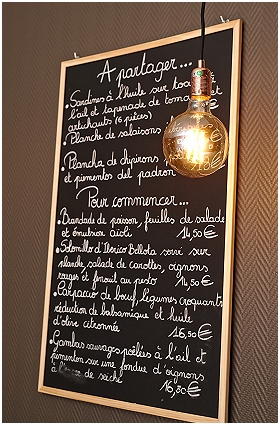 A partager...
• Sardines à l'huile sur toa
l'ail et tapenade de toma
artichauts (6 pièces)
• Planche de salaisons
• Plancha de chipirons
et pimentos del padron
Pour commencer...
• Brandade de poisson, feuilles de salade
et émulsion aïoli 14,50€
• Solomillo d'Ibérico Bellota servi sur
planche, salade de carottes, oignons
rouges et fenouil au pesto 14,50€
• Carpaccio de bœuf, légumes croquants,
réduction de balsamique et huile
d'olive citronnée 16,50€
• Gambas sauvages poêlées à l'ail et
pimenton sur une fondue d'oignons
à l'encre de seiche 16,30€